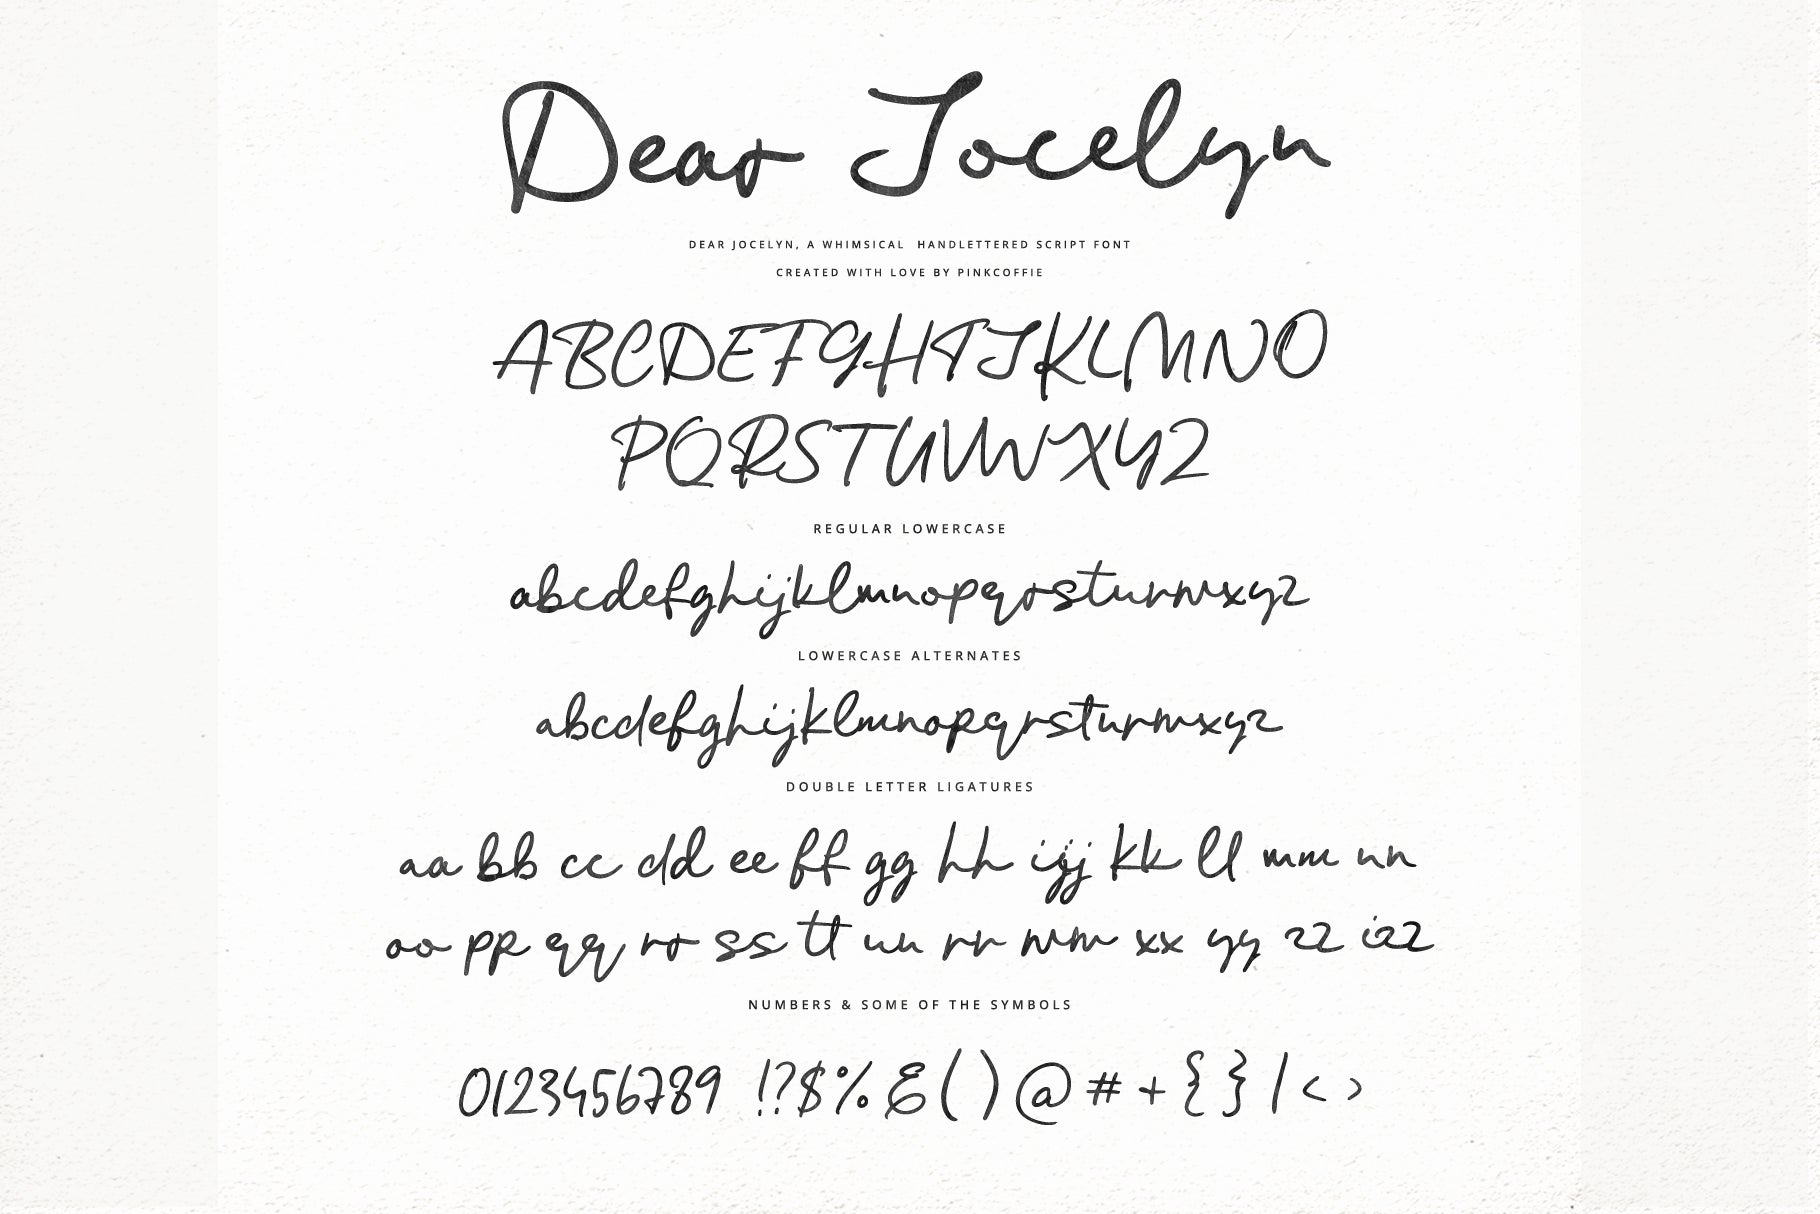 Dear Jocelyn
DEAR JOCELYN, A WHIMSICAL HANDLETTERED SCRIPT FONT
CREATED WITH LOVE BY PINKCOFFIE
ABCDEFGHIJKLMNO
PQRSTUVWXYZ
REGULAR LOWERCASE
abcdefghijklmnopqrstuvwxyz
LOWERCASE ALTERNATES
abcdefghijklmnopqrstuvwxyz
DOUBLE LETTER LIGATURES
aa bb cc dd ee ff gg hh iijj kk ll mm nn
oo pp qq rr ss tt uu vv ww xx yy zz izz
NUMBERS & SOME OF THE SYMBOLS
0123456789 !?$%&()@#+{}|<>